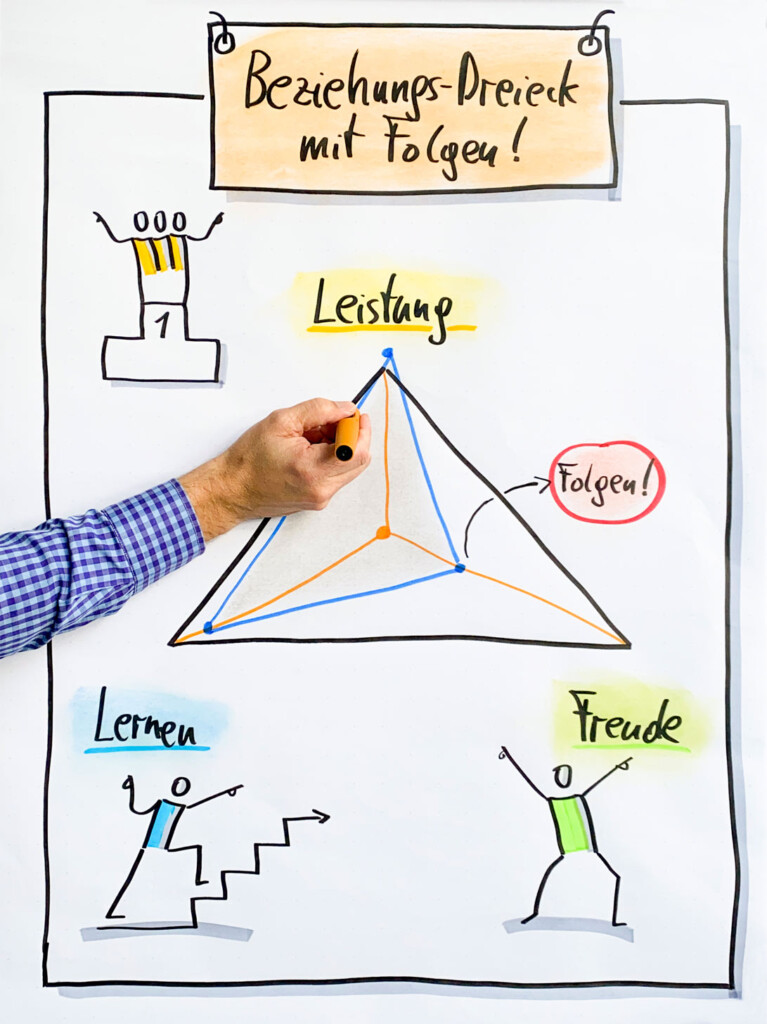 Beziehungs-Dreieck
mit Folgen!
1
Leistung
Folgen!
Lernen
Freude